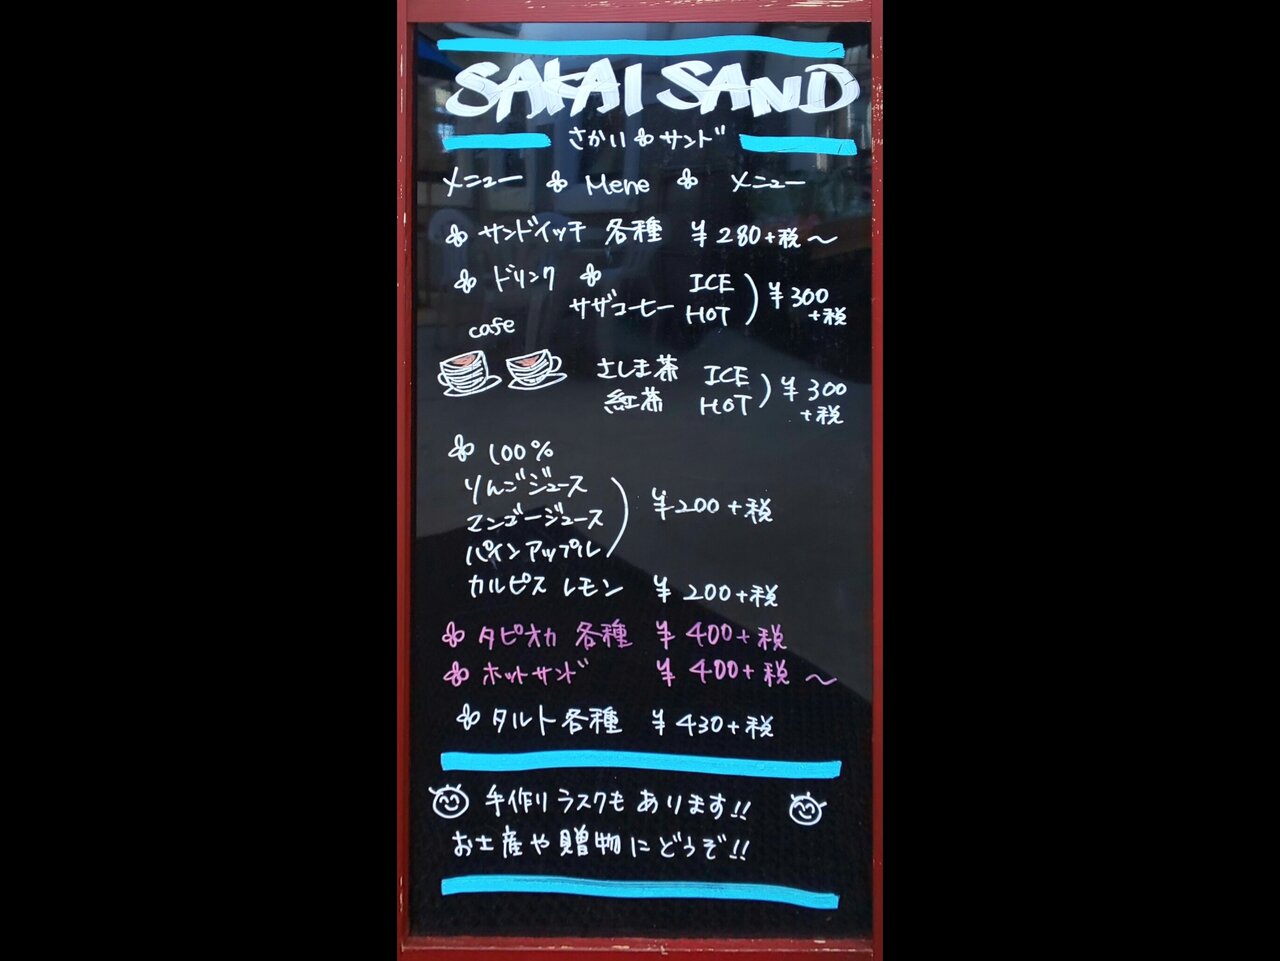 SAKAI SAND
さかい サンド
メニュー Mene メニュー
サンドイッチ 各種 ¥280+税〜
ドリンク
サザコーヒー ICE HOT ) ¥300 +税
cafe
さしま茶 紅茶 ICE HOT ) ¥300 +税
100%
りんごジュース
マンゴージュース ) ¥200+税
パインアップル
カルピス レモン ¥200+税
タピオカ 各種 ¥400+税
ホットサンド ¥400+税〜
タルト各種 ¥430+税
手作りラスクも あります!!
お土産や贈物にどうぞ!!